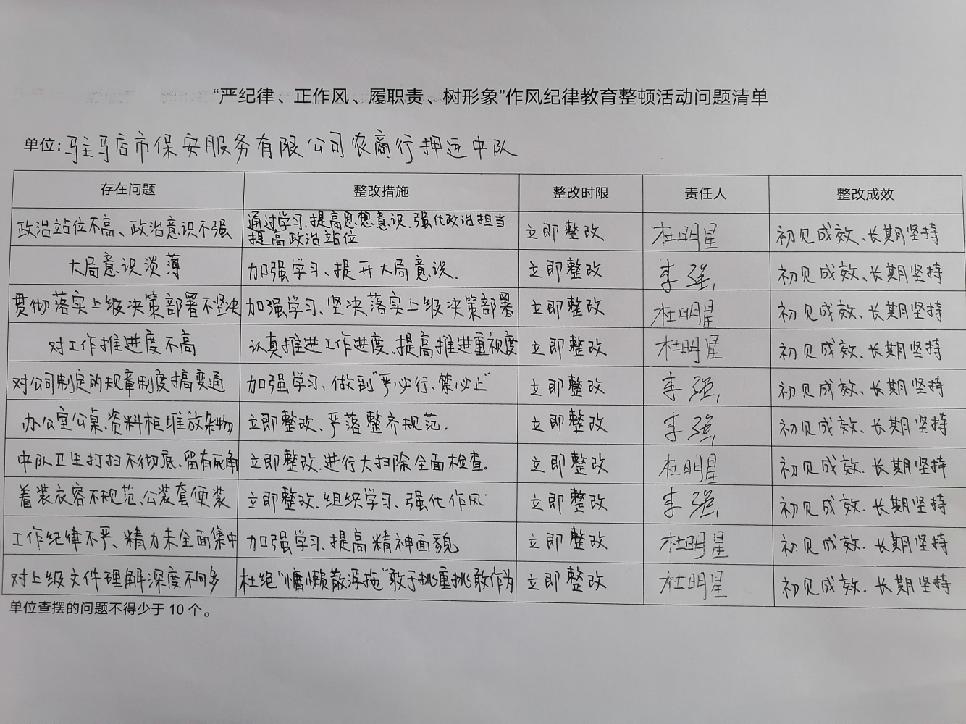 “严纪律、正作风、履职责、树形象”作风纪律教育整顿活动问题清单
单位:驻马店市保安服务有限公司农商行押运中队
存在问题 整改措施 整改时限 责任人 整改成效
政治站位不高、政治意识不强 通过学习、提高思想意识、强化政治担当 提高政治站位 立即整改 杜明星 初见成效、长期坚持
大局意识淡薄 加强学习、提升大局意识. 立即整改 李强 初见成效、长期坚持
贯彻落实上级决策部署不坚决 加强学习、坚决落实上级决策部署 立即整改 杜明星 初见成效、长期坚持
对工作推进度不高 认真推进工作进度、提高推进重视度 立即整改 杜明星 初见成效、长期坚持
对公司制定的规章制度搞变通 加强学习、做到“严必行、禁必止” 立即整改 李强 初见成效、长期坚持
办公室公桌、资料柜堆放杂物 立即整改、严落整齐规范. 立即整改 李强 初见成效、长期坚持
中队卫生打扫不彻底、留有死角 立即整改、进行大扫除全面检查. 立即整改 杜明星 初见成效、长期坚持
着装衣容不规范、公装套便装 立即整改、组织学习、强化作风 立即整改 李强 初见成效、长期坚持
工作纪律不严、精力未全面集中 加强学习、提高精神面貌 立即整改 杜明星 初见成效、长期坚持
对上级文件理解深度不同多 杜绝“慵懒散浮拖”敢于挑重挑敢作为 立即整改 杜明星 初见成效、长期坚持
单位查摆的问题不得少于 10 个。